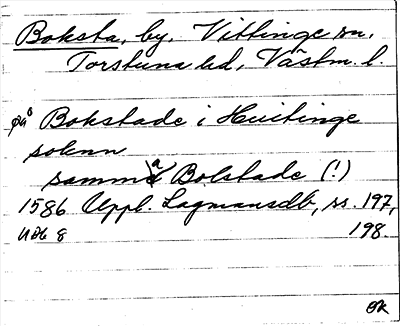 Boksta, by, Vittinge sn,
Torstuna hd, Västm. l.
på Bokstade i Huitinge
soknn
samma Bolstade (!)
1586 Uppl. Lagmansdb, ss. 197,
UDb 8 198.